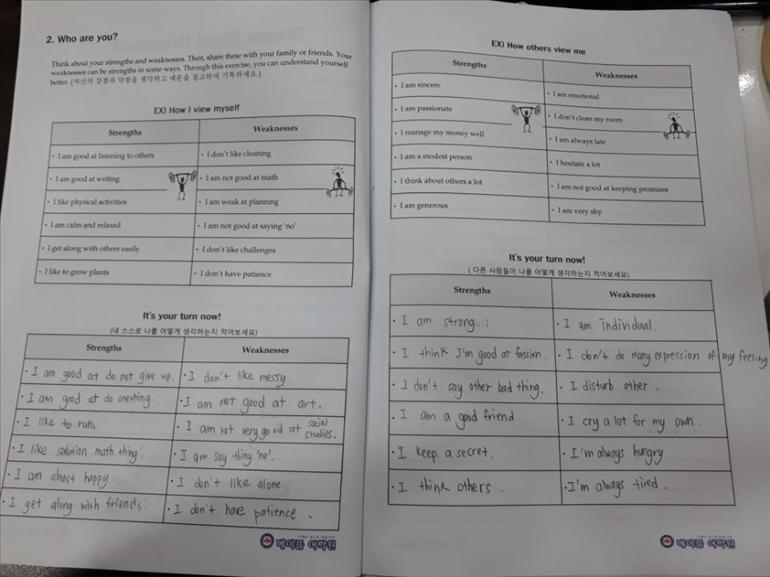 2. Who are you?
Think about your strengths and weaknesses. Then, share these with your family or friends. Your
weaknesses can be strengths in some ways. Through this exercise, you can understand yourself
better. (자신의 강점과 약점을 생각하고 예문을 참고하여 기록하세요.)
EX) How I view myself
Strengths Weaknesses
• I am good at listening to others • I don't like cleaning
• I am good at writing • I am not good at math
• I like physical activities • I am weak at planning
• I am calm and relaxed • I am not good at saying 'no'
• I get along with others easily • I don't like challenges
• I like to grow plants • I don't have patience
It's your turn now!
(내 스스로 나를 어떻게 생각하는지 적어보세요)
Strengths Weaknesses
• I am good at do not give up. • I don't like messy.
• I am good at do onething. • I am not good at art.
• I like to run. • I am not very good at social studies.
• I like solution math thing. • I am say thing 'no'.
• I am almost happy • I don't like alone.
• I get along with friends. • I don't have patience.
메이플 어학원
EX) How others view me
Strengths Weaknesses
• I am sincere • I am emotional
• I am passionate • I don't clean my room
• I manage my money well • I am always late
• I am a modest person • I hesitate a lot
• I think about others a lot • I am not good at keeping promises
• I am generous • I am very shy
It's your turn now!
( 다른 사람들이 나를 어떻게 생각하는지 적어보세요)
Strengths Weaknesses
• I am strong. • I am individual.
• I think I'm good at fassion. • I don't do many expression of my feeling
• I don't say other bad thing. • I disturb other.
• I am a good friend • I cry a lot for my own.
• I keep a secret. • I'm always hungry
• I think others. • I'm always tired.
메이플 어학원